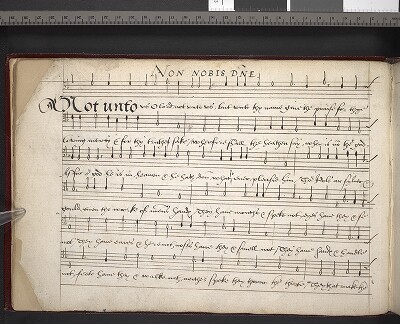 NON NOBIS DNE
Not unto us O Lord not unto us, but unto thy name give the praise for thy
loving mercy & for thy truthes sake, wherfore shall the heathen say, wher is now the god
As for our god he is in heaven & he hath don whatsoever pleased him. Ther Idols ar silver
gould, even the worke of mens hands, They have mouthe & speke not, eyes have they & se
not. They have eares & heare not, noses have they & smell not, They have hands & handle
not, feete have they & walke not, neither speke they thorow ther throte. They that make the